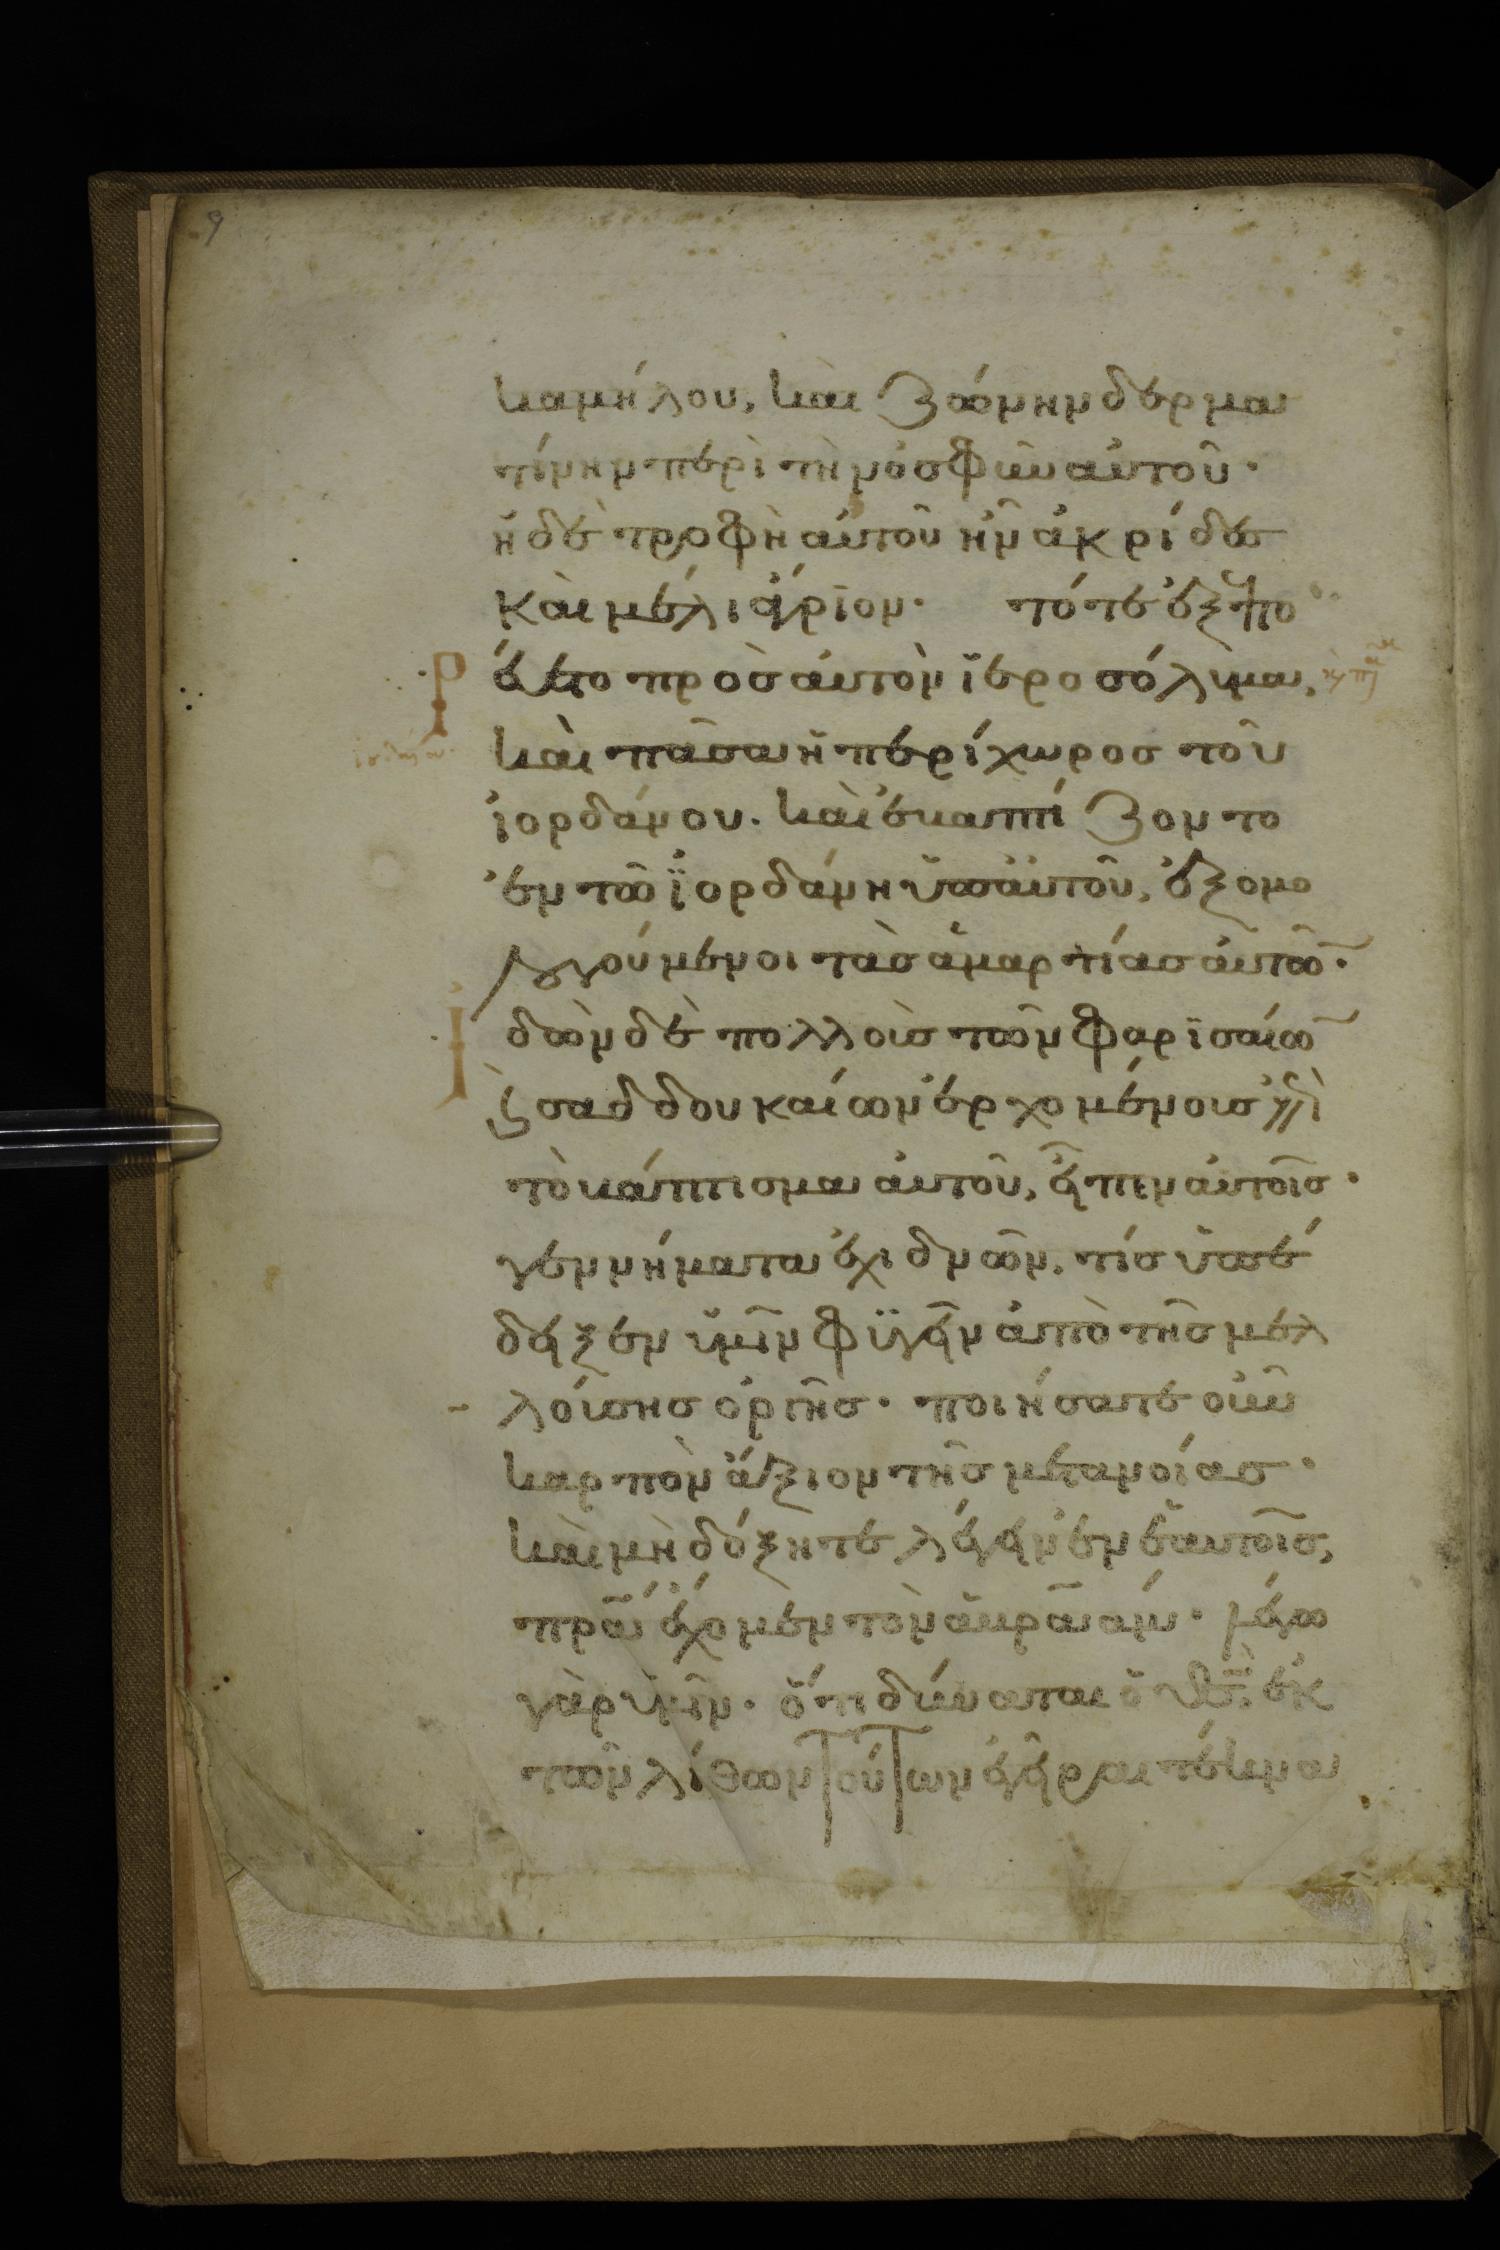 9
καμήλου, και ζώνην δερμα
τίνην περὶ τὴν ὀσφῦν αὐτοῦ·
ἡ δὲ τροφὴ αὐτοῦ ἦν ἀκρίδες
και μέλι ἄγριον· τότε ἐξεπο
ρ εύετο πρὸς αὐτὸν ἱεροσόλυμα,
και πᾶσα ἡ περίχωρος τοῦ
ἰορδάνου. και ἐβαπτίζοντο
ἐν τῶ ἰορδάνη ὑπ αὐτοῦ, ἐξομο
λογούμενοι τὰς ἁμαρτίας αὐτῶ·
Ἰ δὼν δὲ πολλοὺς τῶν φαρισαίω
ϗ σαδδουκαίων ἐρχομένους ἐπὶ
τὸ βάπτισμα αὐτοῦ, εἶπεν αὐτοῖς·
γεννήματα ἐχιδνῶν, τίς ὑπέ
δειξεν ὑμῖν φυγεῖν ἀπὸ τῆς μελ
λούσης ὀργῆς· ποιήσατε οὖν
καρπὸν ἄξιον τῆς μετανοίας·
και μὴ δόξητε λέγειν ἐν ἑαυτοῖς,
πρα ἔχομεν τὸν ἀβραάμ· λέγω
γὰρ ὑμῖν· ὅτι δύναται ὁ θς ἐκ
τῶν λίθων τούτων ἐγεῖραι τέκνα